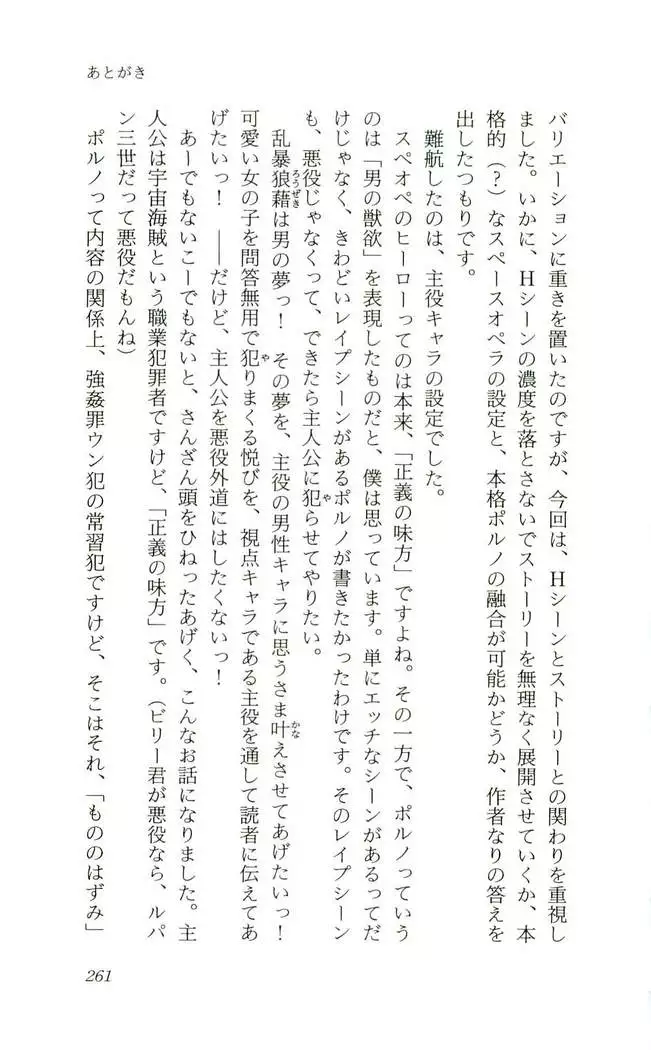 あとがき
バリエーションに重きを置いたのですが、今回は、Hシーンとストーリーとの関わりを重視し
ました。いかに、Hシーンの濃度を落とさないでストーリーを無理なく展開させていくか、本
格的（？）なスペースオペラの設定と、本格ポルノの融合が可能かどうか、作者なりの答えを
出したつもりです。
難航したのは、主役キャラの設定でした。
スペオペのヒーローってのは本来、「正義の味方」ですよね。その一方で、ポルノっていう
のは「男の獣欲」を表現したものだと、僕は思っています。単にエッチなシーンがあるってだ
けじゃなく、きわどいレイプシーンがあるポルノが書きたかったわけです。そのレイプシーン
も、悪役じゃなくって、できたら主人公に犯らせてやりたい。
乱暴狼藉は男の夢っ！　その夢を、主役の男性キャラに思うさま叶えさせてあげたいっ！
可愛い女の子を問答無用で犯りまくる悦びを、視点キャラである主役を通して読者に伝えてあ
げたいっ！　――だけど、主人公を悪役外道にはしたくないっ！
あーでもないこーでもないと、さんざん頭をひねったあげく、こんなお話になりました。主
人公は宇宙海賊という職業犯罪者ですけど、「正義の味方」です。（ビリー君が悪役なら、ルパ
ン三世だって悪役だもんね）
ポルノって内容の関係上、強姦罪ウン犯の常習犯ですけど、そこはそれ、「もののはずみ」
261